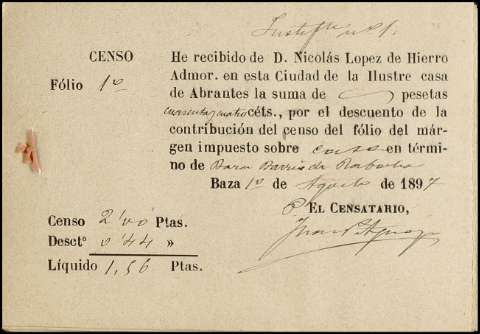 Justifte nº 1.
CENSO
Fólio 1º
He recibido de D. Nicolás Lopez de Hierro
Admor. en esta Ciudad de la Ilustre casa
de Abrantes la suma de pesetas
cuarenta y cuatro céts., por el descuento de la
contribución del censo del fólio del már-
gen impuesto sobre casa en térmi-
no de Baza Barrio de
Baza 1º de Agosto de 1897
Censo 2'00 Ptas.
Desctº 0'44 »
Líquido 1,56 Ptas.
P. EL CENSATARIO,
Juan